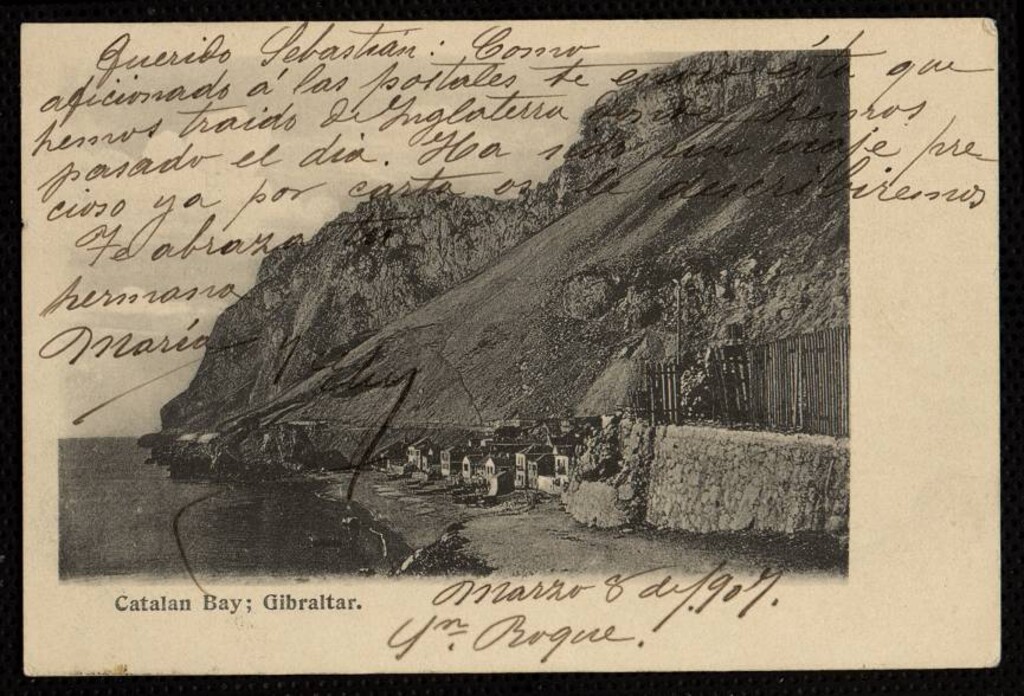 Querido Sebastián: Como
aficionado á las postales te envio ésta que
hemos traido de Inglaterra donde hemos
pasado el dia. Ha sido un viaje pre-
cioso ya por carta os le describiremos
Te abraza tu
hermana
María y Luz
Catalan Bay; Gibraltar.
Marzo 8 de/907.
Sn. Roque.